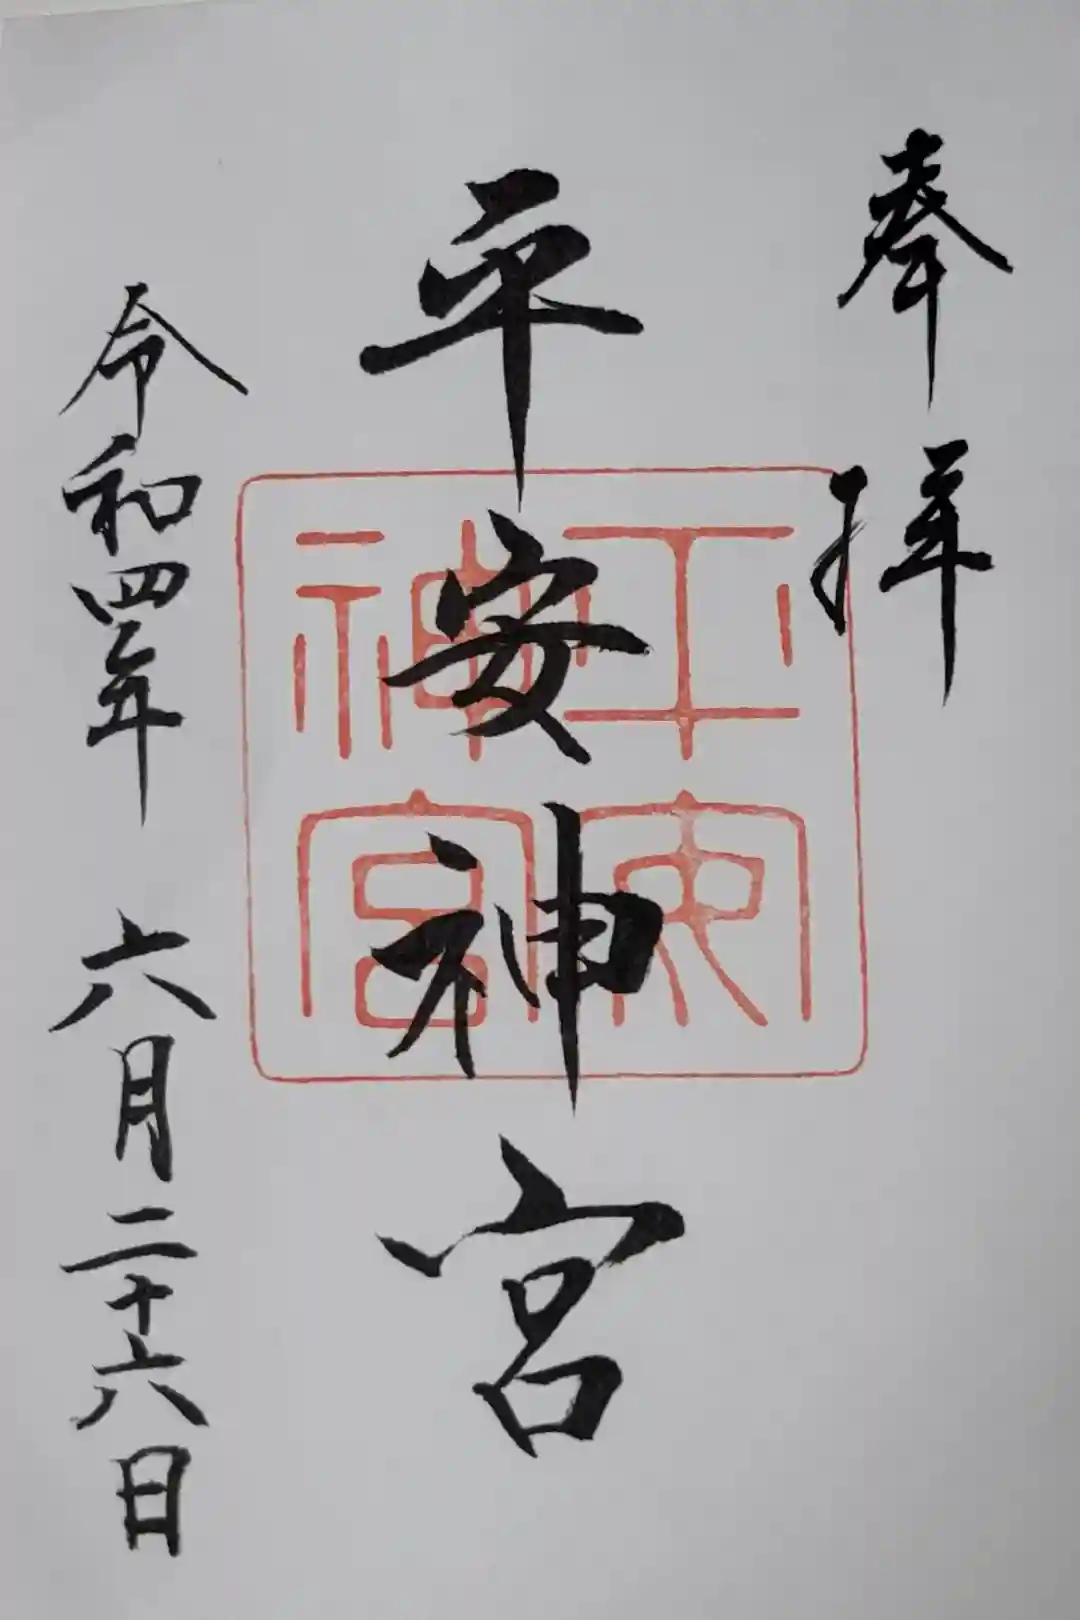 奉拝
平安神宮
平安神宮
令和四年 六月二十六日